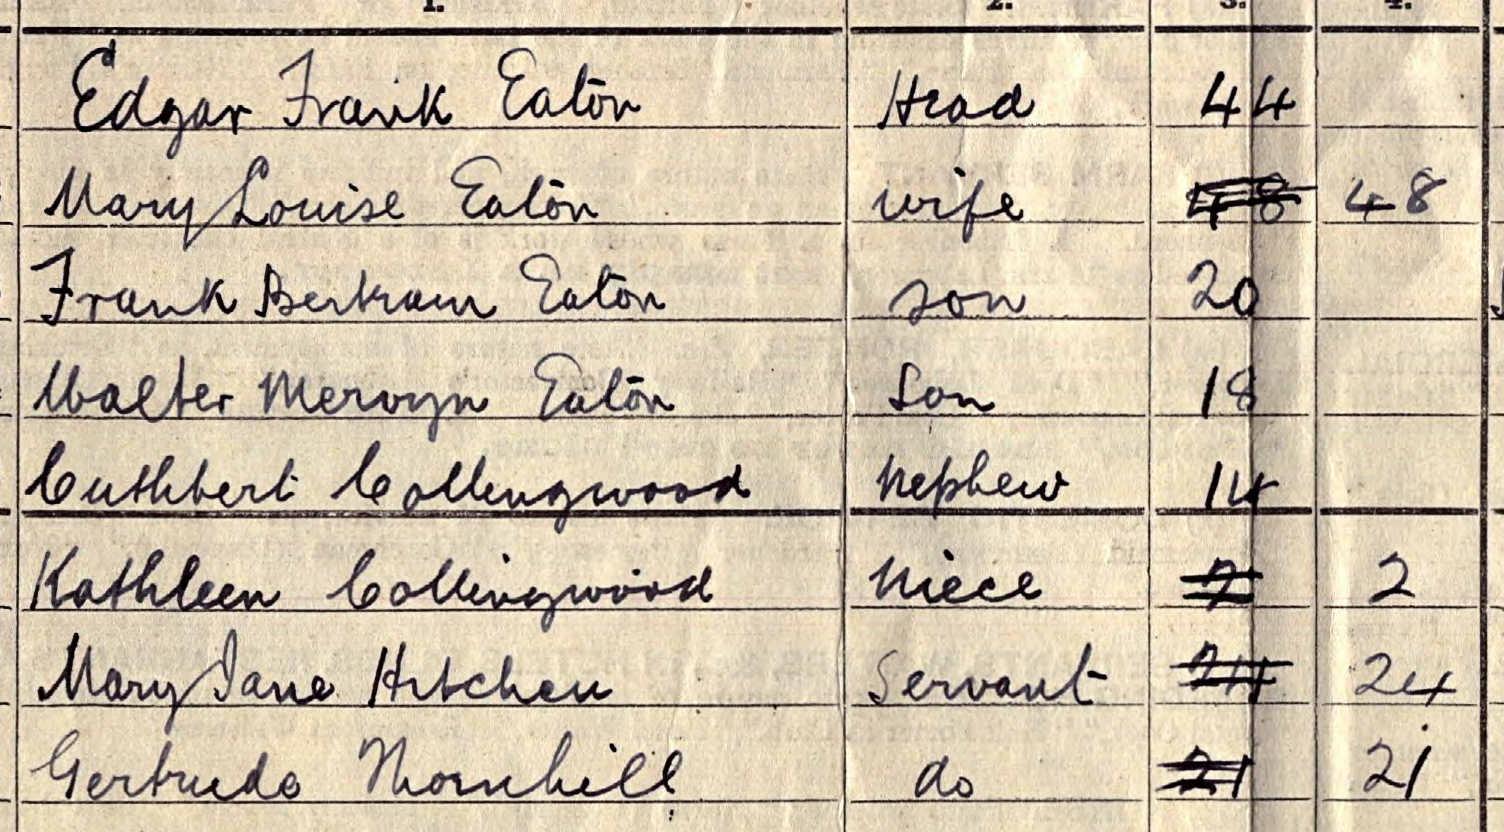 1. 2. 3. 4.
Edgar Frank Eaton Head 44
Mary Louise Eaton wife 48 48
Frank Bertram Eaton son 20
Walter Mervyn Eaton Son 18
Cuthbert Collingwood Nephew 14
Kathleen Collingwood Niece 2 2
Mary Jane Hitchen Servant 24 24
Gertrude Thornhill do 21 21